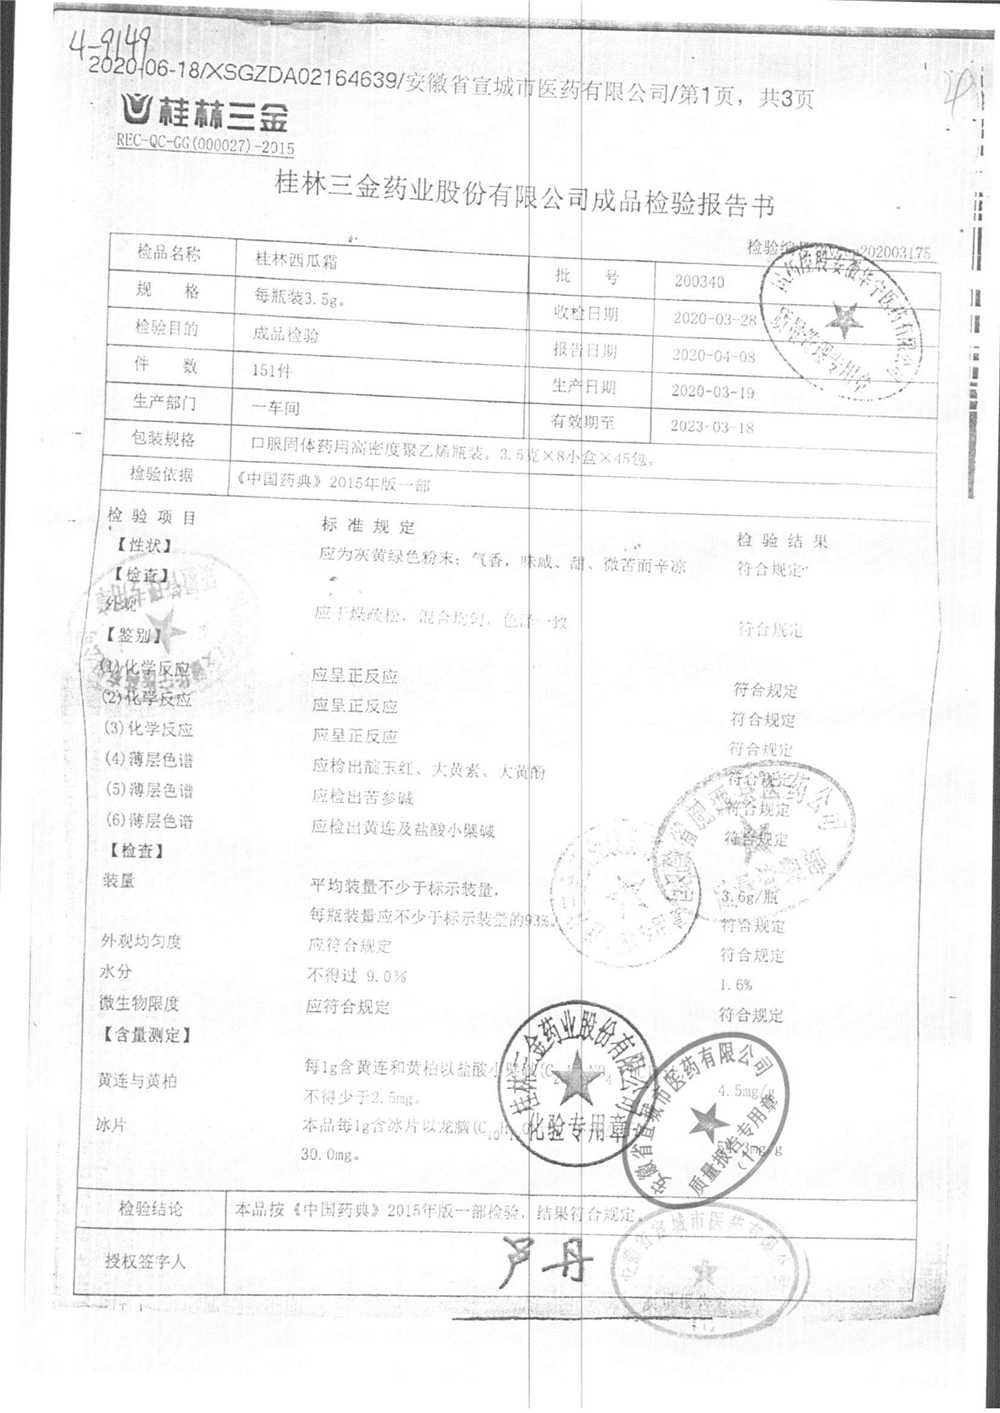 4-9149
2020-06-18/XSGZDA02164639/安徽省宣城市医药有限公司/第1页，共3页
桂林三金
REC-QC-GG(000027)-2015
桂林三金药业股份有限公司成品检验报告书
检验编 202003175
检品名称 桂林西瓜霜 批 号 200340
规 格 每瓶装3.5g。 收检日期 2020-03-28
检验目的 成品检验 报告日期 2020-04-08
件 数 151件 生产日期 2020-03-19
生产部门 一车间 有效期至 2023-03-18
包装规格 口服固体药用高密度聚乙烯瓶装。3.5克×8小盒×45包。
检验依据 《中国药典》2015年版一部
检 验 项 目 标 准 规 定 检 验 结 果
【性状】 应为灰黄绿色粉末；气香，味咸、甜、微苦而辛凉 符合规定
【检查】
外观 应干燥疏松，混合均匀，色泽一致 符合规定
【鉴别】
(1)化学反应 应呈正反应 符合规定
(2)化学反应 应呈正反应 符合规定
(3)化学反应 应呈正反应 符合规定
(4)薄层色谱 应检出靛玉红、大黄素、大黄酚 符合规定
(5)薄层色谱 应检出苦参碱 符合规定
(6)薄层色谱 应检出黄连及盐酸小檗碱 符合规定
【检查】
装量 平均装量不少于标示装量， 3.6g/瓶
每瓶装量应不少于标示装量的93%。 符合规定
外观均匀度 应符合规定 符合规定
水分 不得过 9.0% 1.6%
微生物限度 应符合规定 符合规定
【含量测定】
黄连与黄柏 每1g含黄连和黄柏以盐酸小檗碱(C 4.5mg/g
不得少于2.5mg。
冰片 本品每1g含冰片以龙脑(C10H 3mg/g
30.0mg。
桂林三金药业股份有限公司
化验专用章
安徽省宣城市医药有限公司
质量报告专用章
(1)
检验结论 本品按《中国药典》2015年版一部检验，结果符合规定。
授权签字人 卢丹